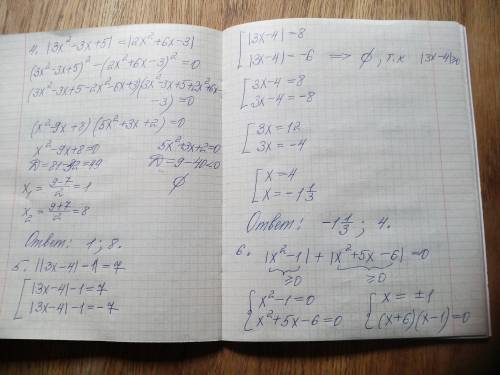 4. |3x²-3x+5| = |2x²+6x-3|
(3x²-3x+5)² - (2x²+6x-3)² = 0
(3x²-3x+5-2x²-6x+3)(3x²-3x+5+2x²+6x
-3) = 0
(x²-9x+8)(5x²+3x+2)=0
x²-9x+8=0 5x²+3x+2=0
D=81-32=49 D=9-40<0
x₁ = (9-7)/2 = 1 ∅
x₂ = (9+7)/2 = 8
Ответ: 1; 8.
5. ||3x-4|-1|=7
[ |3x-4|-1=7
|3x-4|-1=-7
[ |3x-4|=8
|3x-4|=-6 ⟹ ∅, т.к |3x-4|≥0
[ 3x-4=8
3x-4=-8
[ 3x=12
3x=-4
[ x=4
x=-1 1/3
Ответ: -1 1/3; 4.
6. |x²-1| + |x²+5x-6|=0
≥0 ≥0
{ x²-1=0 { x=±1
x²+5x-6=0 (x+6)(x-1)=0